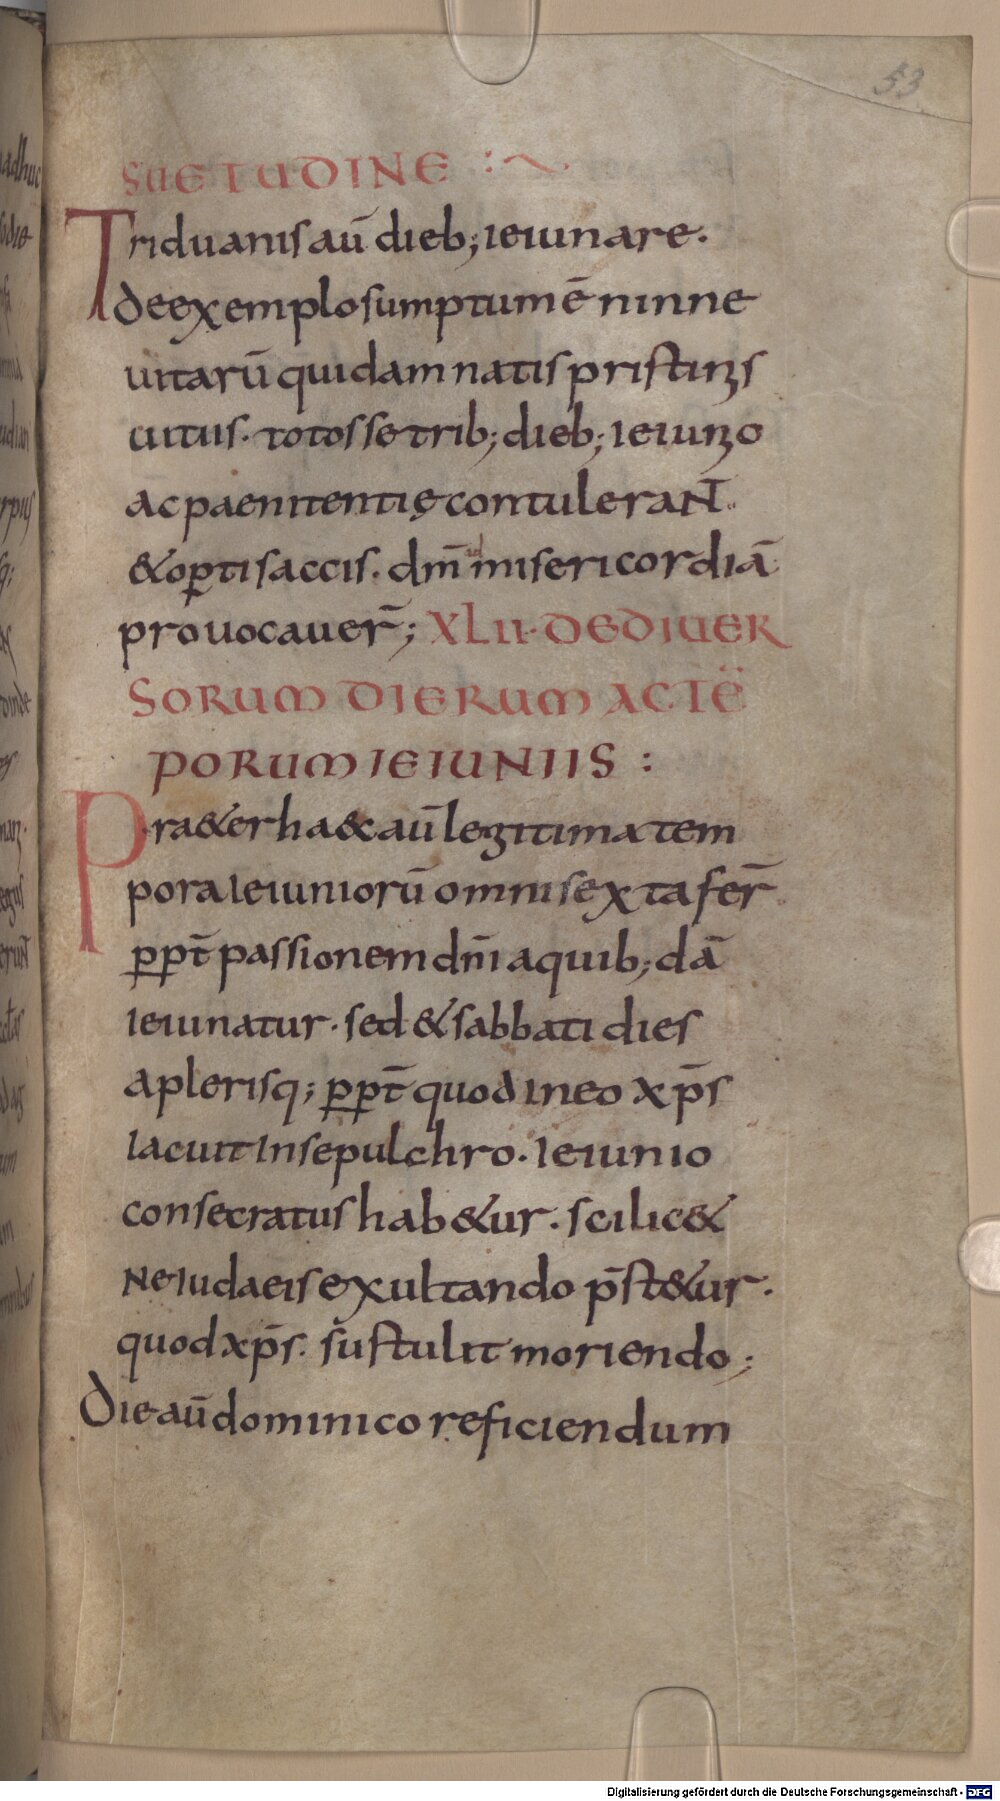 53
SUETUDINE :~
Triduanis aū dieb; ieiunare.
de exemplo sumptum ē ninne
uitarū quidam natis pristinȝ s
cutus. totos se trib; dieb; ieiunȝo
ac paenitentię contuleraNT..
& optis accis. dm̄ ad misericordiā
prouocauer̄; XLII. DE DIUER
SORUM DIERUM AC TĒ
PORUM IEIUNIIS :
Pra&er ha&c aū legitima tem
pora ieiuniorū omni sexta fer̄
ꝓpt̄ passionem dn̄i a quib;dā
ieiunatur. sed & sabbati dies
a plerisq; ꝓpt̄ quod in eo xp̄s
iacuit in sepulchro. Ieiunio
consecratus hab&ur. scilic&
Ne iudaeis exultando p̄st&ur.
quod xp̄s. sustulit moriendo;
Die aū dominico reficiendum
Digitalisierung gefördert durch die Deutsche Forschungsgemeinschaft - DFG